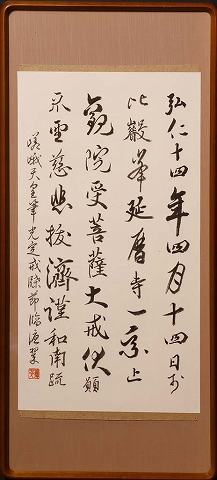 弘仁十四年四月十四日於
比叡峯延暦寺一乗止
観院受菩薩大戒伏願
示垂慈悲抜濟謹和南疏
嵯峨天皇筆光定戒牒節臨